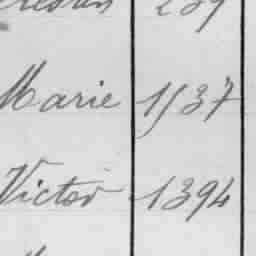 Marie 1537
Victor 1394